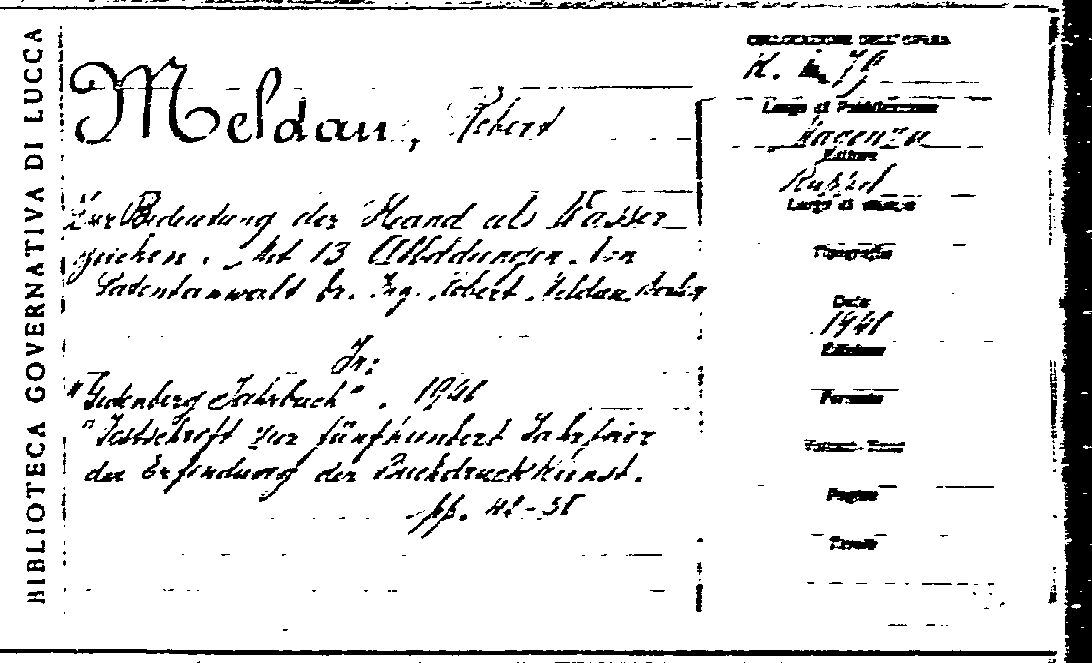 BIBLIOTECA GOVERNATIVA DI LUCCA
Meldau, Robert
Zur Bedeutung der Hand als Wasser
zeichen. Mit 13 Abbildungen. Von
Patentanwalt Dr. Ing. Robert Meldau, Berlin
In:
"Gutenberg Jahrbuch".
"Festschrift zur fünfhundert Jahrfeier
der Erfindung der Buchdruckkunst.
pp.
COLLOCAZIONE DELL'OPERA
Luogo di Pubblicazione
Editore
Ruppel
Luogo di stampa
Tipografia
Data
Edizione
Formato
Pagine